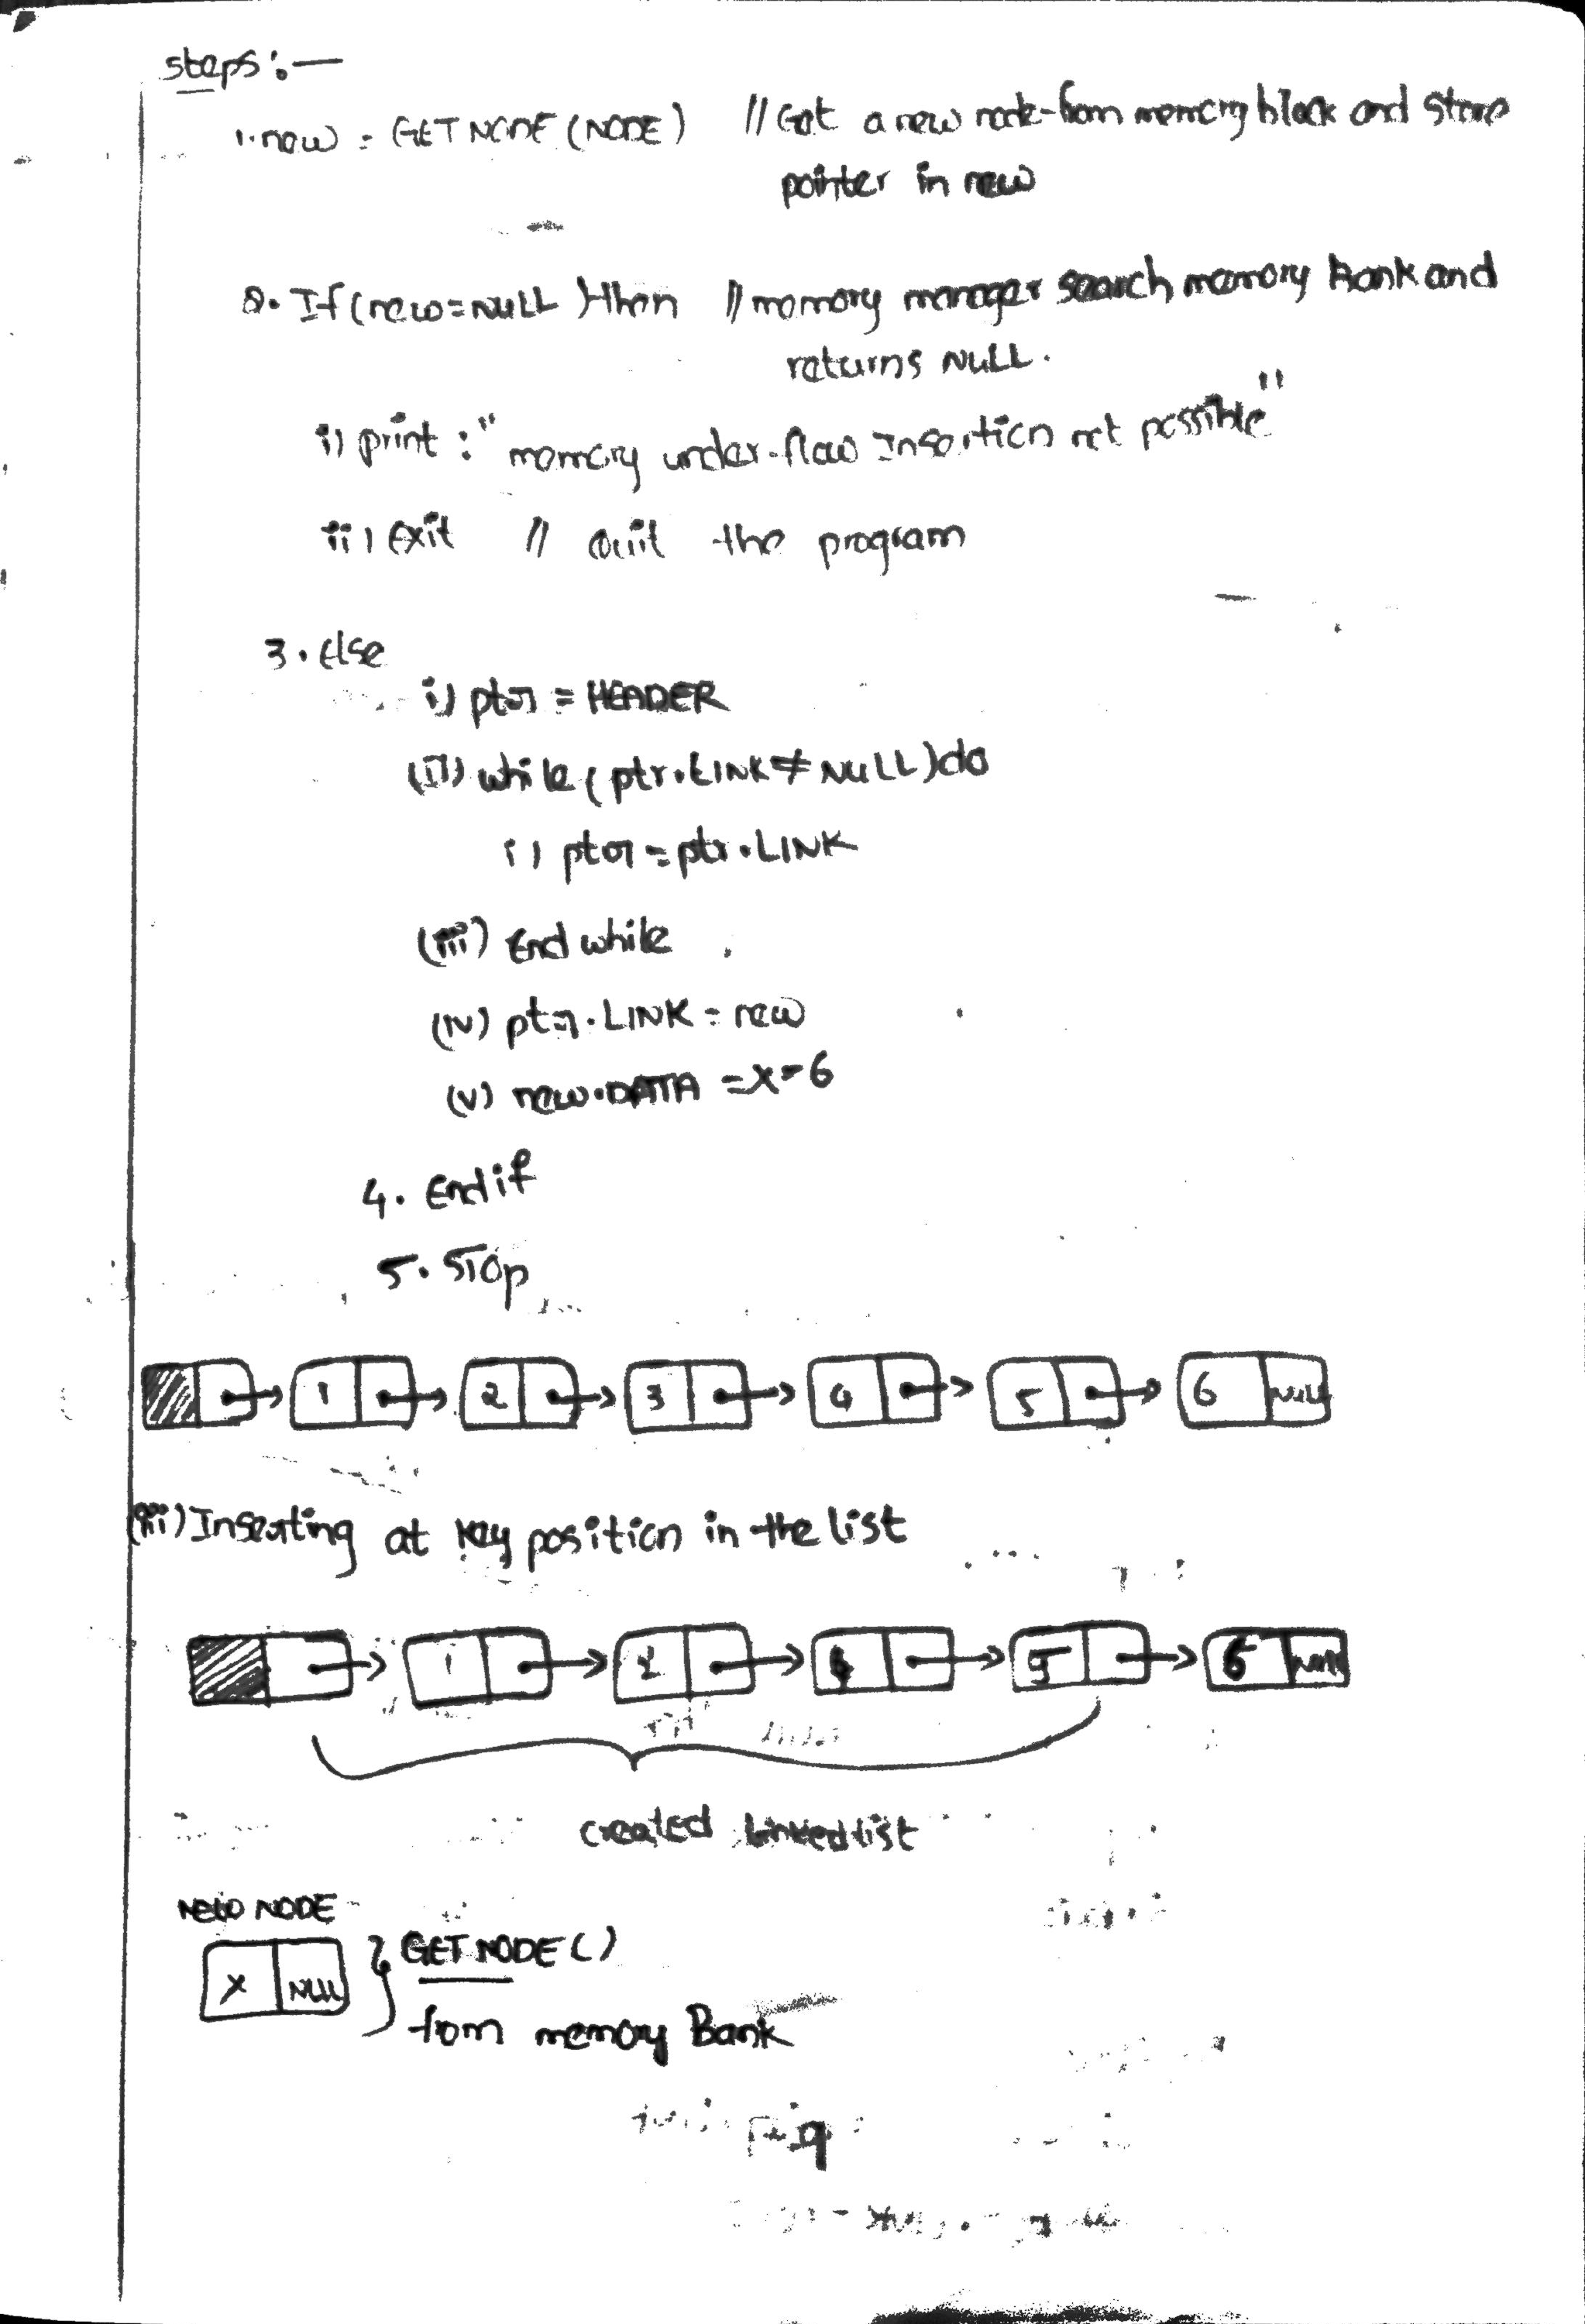 steps:—
1. new = GETNODE (NODE) // Get a new node from memory block and store
pointer in new
2. If (new = NULL) then // memory manager search memory Bank and
returns NULL.
i) print : "memory under-flow Insertion not possible"
ii) Exit // Quit the program
3. Else
i) ptr = HEADER
(ii) while (ptr.LINK ≠ NULL) do
i) ptr = ptr.LINK
(iii) End while
(iv) ptr.LINK = new
(v) new.DATA = X = 6
4. End if
5. STOp
1 2 3 4 5 6 NULL
(iii) Inserting at key position in the list
1 2 4 5 6 NULL
created Linked list
NEW NODE
X NULL } GETNODE ()
from memory Bank